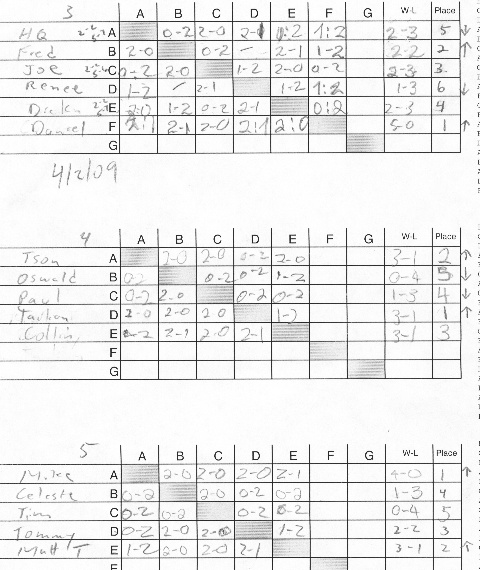 3 A B C D E F G W-L Place
HQ A 0-2 2-0 2-1 1:2 1:2 2-3 5 ↓
Fred B 2-0 0-2 - 2-1 1-2 2-2 2 ↑
Joe C 0-2 2-0 1-2 2-0 0-2 2-3 3
Renee D 1-2 / 2-1 1-2 1:2 1-3 6 ↓
E 1-2 0-2 2-1 0:2 2-3 4
Daniel F 2:1 2-1 2-0 2:1 2:0 5-0 1 ↑
G
4/2/09
4 A B C D E F G W-L Place
Tson A 2-0 2-0 0-2 2-0 3-1 2 ↑
Oswald B 0-2 0-2 0-2 1-2 0-4 5 ↓
Paul C 0-2 2-0 0-2 0-2 1-3 4 ↓
D 2-0 2-0 2-0 1-2 3-1 1 ↑
Collin E 2-1 2-0 2-1 3-1 3
F
G
5 A B C D E F G W-L Place
Mike A 2-0 2-0 2-0 2-1 4-0 1 ↑
Celeste B 0-2 2-0 0-2 0-2 1-3 4
Tim C 0-2 0-2 0-2 0-2 0-4 5
Tommy D 0-2 2-0 2-0 1-2 2-2 3
Matt T E 1-2 2-0 2-0 2-1 3-1 2 ↑
F